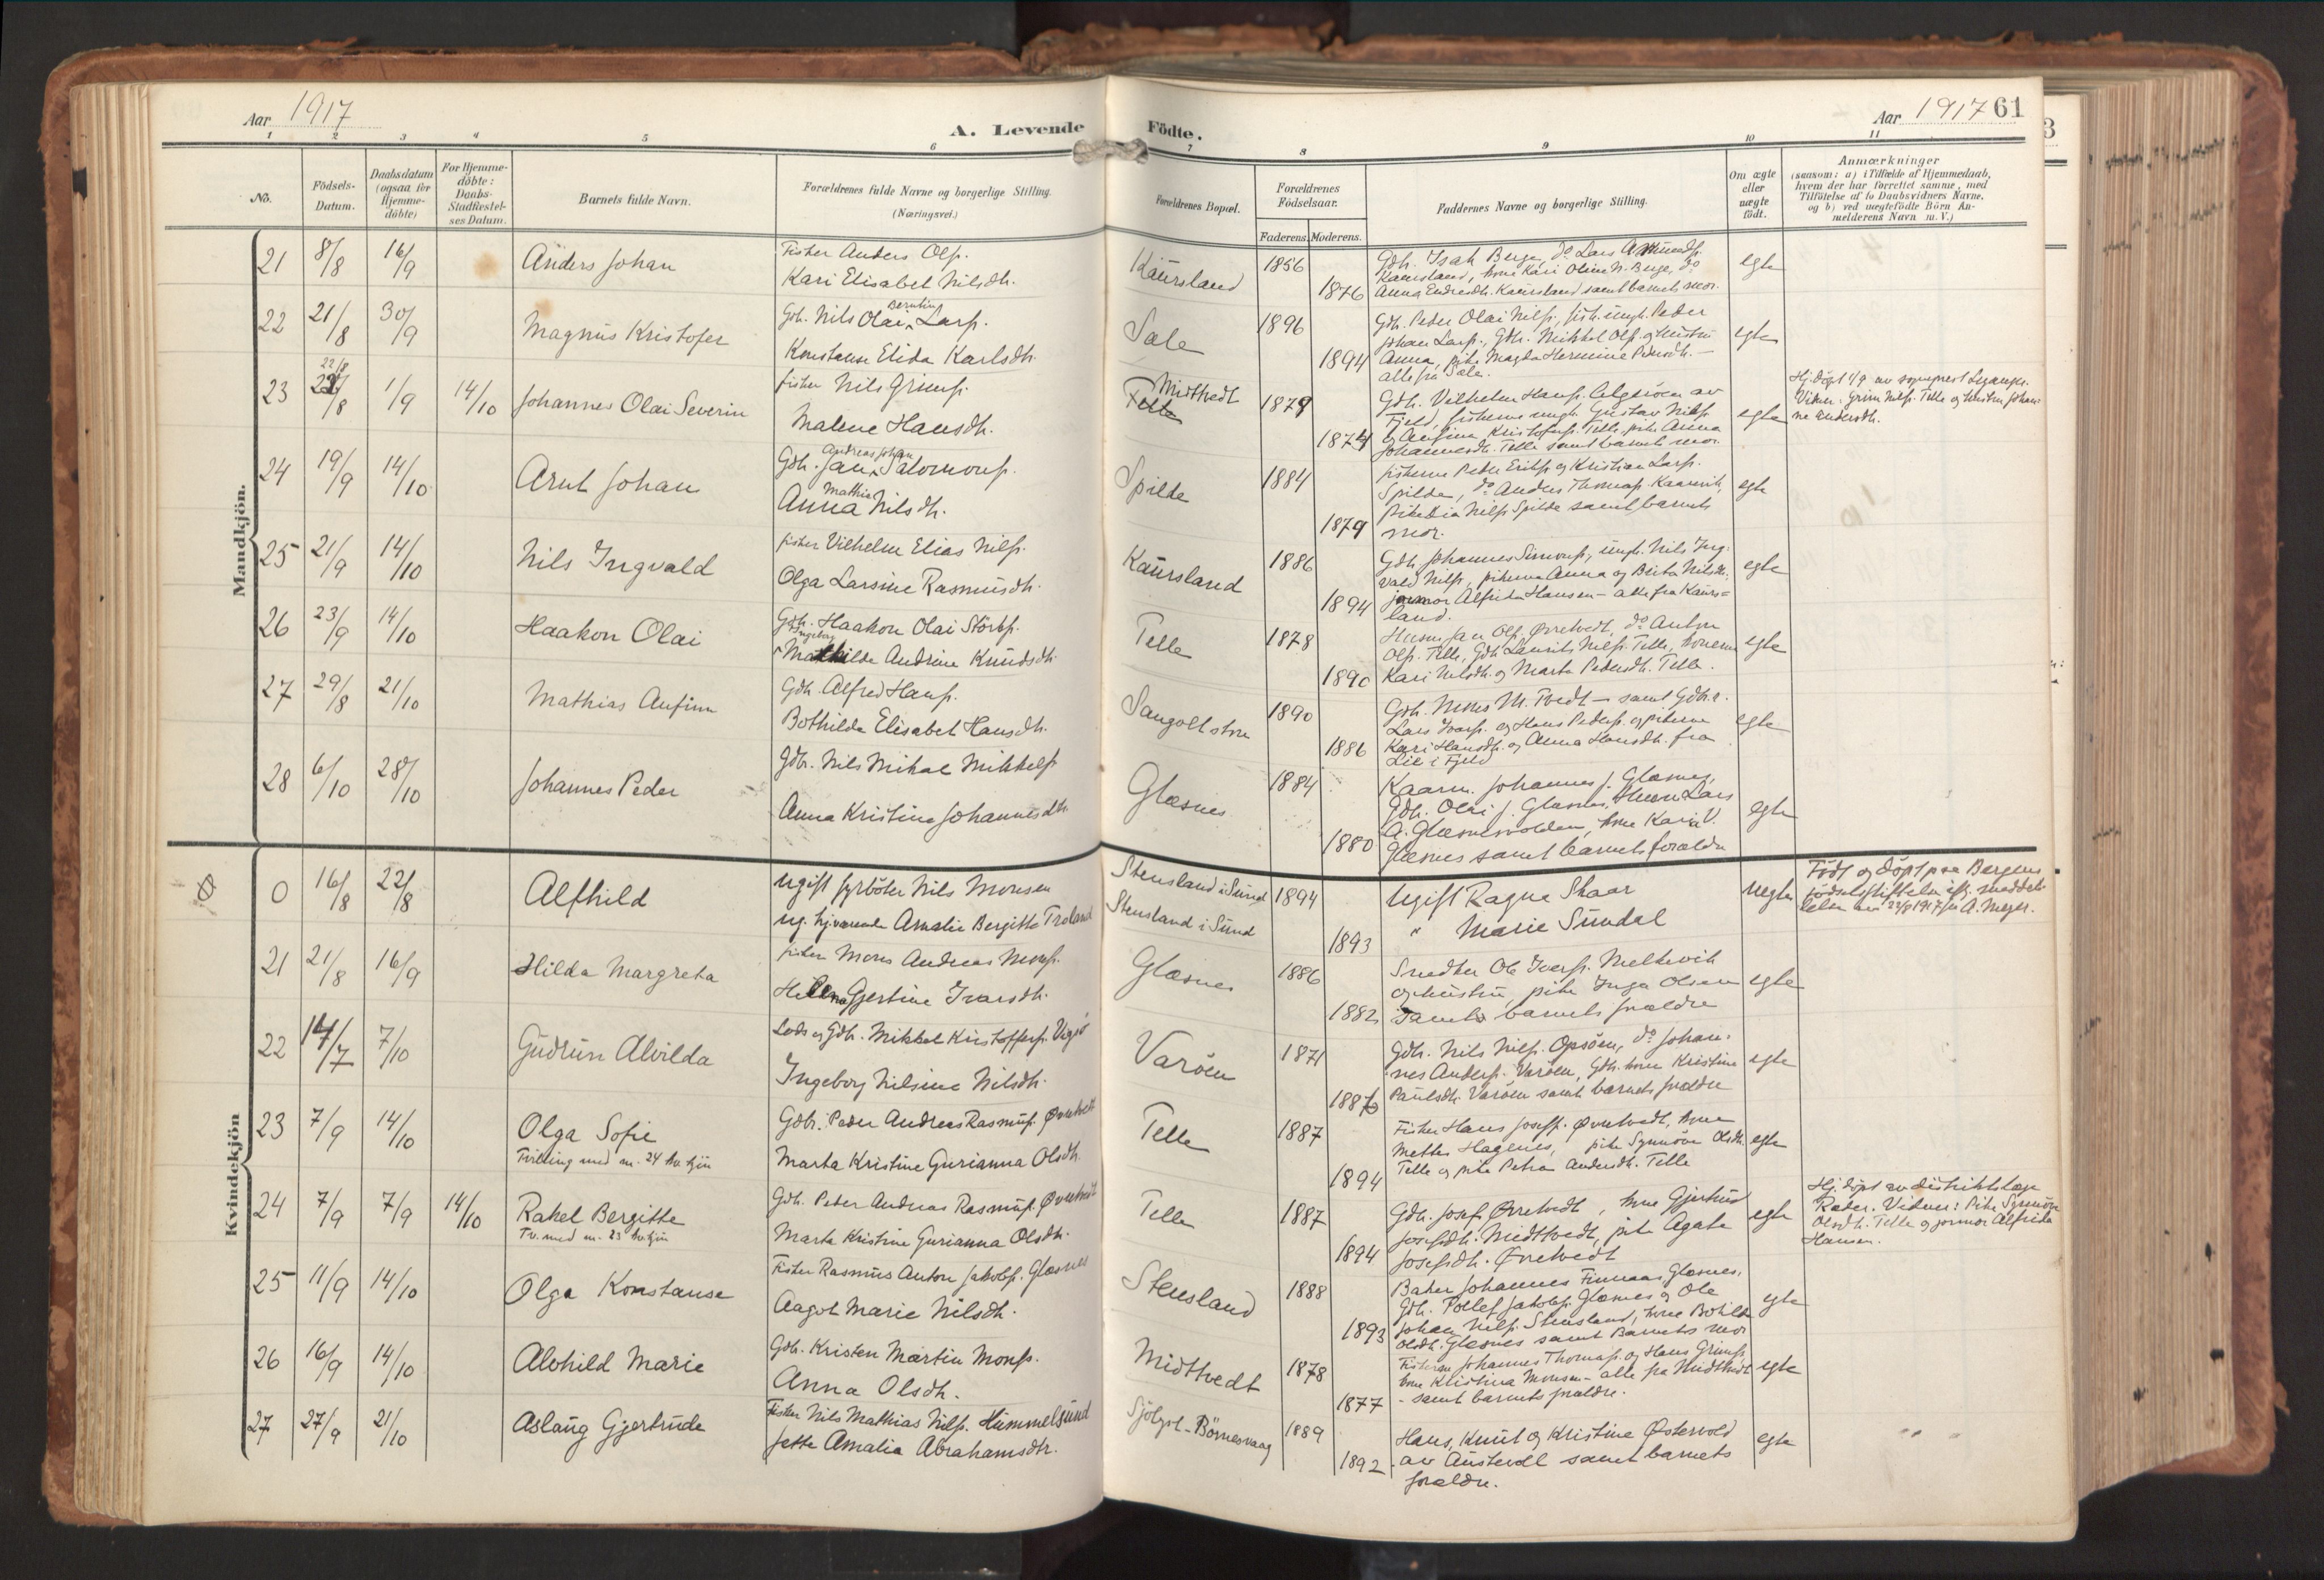 Aar 1917
A. Levende Födte.
Aar 1917 61
1 2 3 4 5 6 7 8 9 10 11
No.
Födsels-Datum.
Daabsdatum (ogsaa for Hjemme-döbte)
For Hjemme-döbte: Daabs-Stadfæstel-ses Datum.
Barnets fulde Navn.
Forældrenes fulde Navne og borgerlige Stilling. (Næringsvei.)
Forældrenes Bopæl.
Forældrenes Födselsaar.
Faderens. Moderens.
Faddernes Navne og borgerlige Stilling.
Om ægte eller uægte födt.
Anmærkninger
(saasom: a) i Tilfælde af Hjemmedaab,
hvem der har forrettet samme, med
Tilföielse af to Daabsvidners Navne,
og b) ved uægtefödte Börn An-
melderens Navn m. V.)
Mandkjön.
21 8/8 16/9 Anders Johan
Fisker Anders Ols.
Kari Elisabet Nilsdh.
Kaursland 1856 1876
Gdh. Isak Berge, do Lars Amundss.
Kaursland, kone Kari Oline N. Berge, do
Anna Endresdh. Kaursland samt barnets mor.
egte
22 21/8 30/9 Magnus Kristofer
Gdh. Nils Olai Berntin Larss.
Konstanse Elida Karlsdh.
Sale 1896 1894
Gdh. Peder Olai Nilss., fisk. ungk. Peder
Johan Larss., Gdh. Mikkel Ols. og hustru
Anna, pike Magda Hermine Pedersdh. —
alle fra Sale.
egte
23 22/8 1/9 14/10 Johannes Olai Severin
fisker Nils Grimss.
Malene Hansdh.
Midttvedt
Telle 1879 1874
Gdh. Vilhelm Hanss. Algeröen av
Fjeld, fiskerne ungk. Gustav Nilss.
og Anfinn Kristofers. Telle, pike Anna
Johannesdh. Telle samt barnets mor.
egte
Hj.döpt 1/9 av sogneprest
Vidner: Grim Nilss. Telle og hustru Johan-
ne Andersdh.
24 19/9 14/10 Arnt Johan
Gdh. Jan Andreas Johan Salomons.
Anna Mathie Nilsdh.
Spilde 1884 1879
fiskerne Peder Eriks. og Kristian Larss.
Spilde, do Anders Thomass. Kaarevik,
pike Nilss. Spilde samt barnets
mor.
egte
25 21/9 14/10 Nils Ingvald
fisker Vilhelm Elias Nilss.
Olga Larsine Rasmusdh.
Kaursland 1886 1894
Gdh. Johannes Simons., ungk. Nils Ing-
vald Nilss., pikerne Anna og Brita Nilsdh.
jormor Alfrida Hansen – alle fra Kaurs=
land.
egte
26 23/9 14/10 Haakon Olai
Gdh. Haakon Olai Störks.
Ingeborg Mathilde Andrine Knudsdh.
Telle 1878 1890
Husm. Jan Ols. Övretvedt, do Anton
Ols. Telle, Gdh. Laurits Nilss. Telle, konerne
Kari Nilsdh. og Marta Pedersdh. Telle.
egte
27 29/8 21/10 Mathias Anfinn
Gdh. Alfred Hanss.
Bothilde Elisabet Hansdh.
Sangolt store 1890 1886
Gdh. Mons M. Tvedt – samt Gdh.r.
Lars Ivars. og Hans Peders. og pikerne
Kari Hansdh. og Anna Hansdh. fra
Lie i Fjeld
egte
28 6/10 28/10 Johannes Peder
Gdh. Nils Mikal Mikkels.
Anna Kristine Johannesdh.
Glæsnes 1884 1880
Kaarm. Johannes J. Glæsnes,
Gdh. Olai J. Glæsnes, Husm. Lars
A. Glæsnesvolden, kone Kari V.
Glæsnes samt barnets forældre
egte
Kvindekjön
0 16/8 22/8 Alfhild
Ugift fyrböter Nils Monsen
ug. hj.værende Amalie Bergitte Troland
Stensland i Sund 1894
Stensland i Sund 1893
Ugift Ragna Skaar
" Marie Sundal
uegte
Födt og döpt paa Bergens
födselsstiftelse iflg. meddel-
telse av 22/8 1917 fra A. Meyer.
21 21/8 16/9 Hilda Margreta
fisker Mons Andreas Monss.
Helena Gjertine Ivarsdh.
Glæsnes 1886 1882
Snedker Ole Ivarss. Melkevik
og hustru, pike Inga Olsen
samt barnets forældre
egte
22 14/7 7/10 Gudrun Alvilda
Lods og Gdh. Mikkel Kristoffers. Vigsö
Ingeborg Nilsine Nilsdh.
Varöen 1871 1886
Gdh. Nils Nilss. Opsöen, do Johan-
nes Anders. Varöen, Gdh. kone Kristine
Paulsdh. Varöen samt barnets forældre
egte
23 7/9 14/10 Olga Sofie
Tvilling med n. 24 kv. kjön
Gdh. Peder Andreas Rasmuss. Övretvedt
Marta Kristine Gurianna Olsdh.
Telle 1887 1894
Fisker Hans Josefs. Övretvedt, kone
Mette Hagenes, pike Synnöve Olsdh.
Telle og pike Petra Andersdh. Telle
egte
24 7/9 7/9 14/10 Rakel Bergitte
Tv. med n. 23 kv. kjön
Gdh. Peder Andreas Rasmuss. Övretvedt
Marta Kristine Gurianna Olsdh.
Telle 1887 1894
Gdh. Josef Övretvedt, kone Gjertrud
Josefsdh. Midttvedt, pike Agate
Josefsdh. Övretvedt
egte
Hj. döpt av distriktslæge
Rader. Vidner: Pike Synnöve
Olsdh. Telle og jormor Alfrida
Hansen.
25 11/9 14/10 Olga Konstanse
Fisker Rasmus Anton Jakobs. Glæsnes
Aagot Marie Nilsdh.
Stensland 1888 1893
Baker Johannes Finnaas Glæsnes,
Gdh. Tollef Jakobs. Glæsnes og Ole
Johan Nilss. Stensland, kone Bothilde
Olsdh. Glæsnes samt Barnets mor
egte
26 16/9 14/10 Alvhild Marie
Gdh. Kristen Martin Monss.
Anna Olsdh.
Midttvedt 1878 1877
Fiskerne Johannes Thomass. og Hans Grims.
kone Kristina Monsen – alle fra Midttvedt
– samt barnets forældre.
egte
27 27/9 21/10 Aslaug Gjertrude
Fisker Nils Mathias Nilss. Hummelsund
Jette Amalia Abrahamsdtr.
Sjölgot-Börnesvaag 1889 1892
Hans, Knut og Kristine Östervold
av Austevoll samt barnets
forældre.
egte